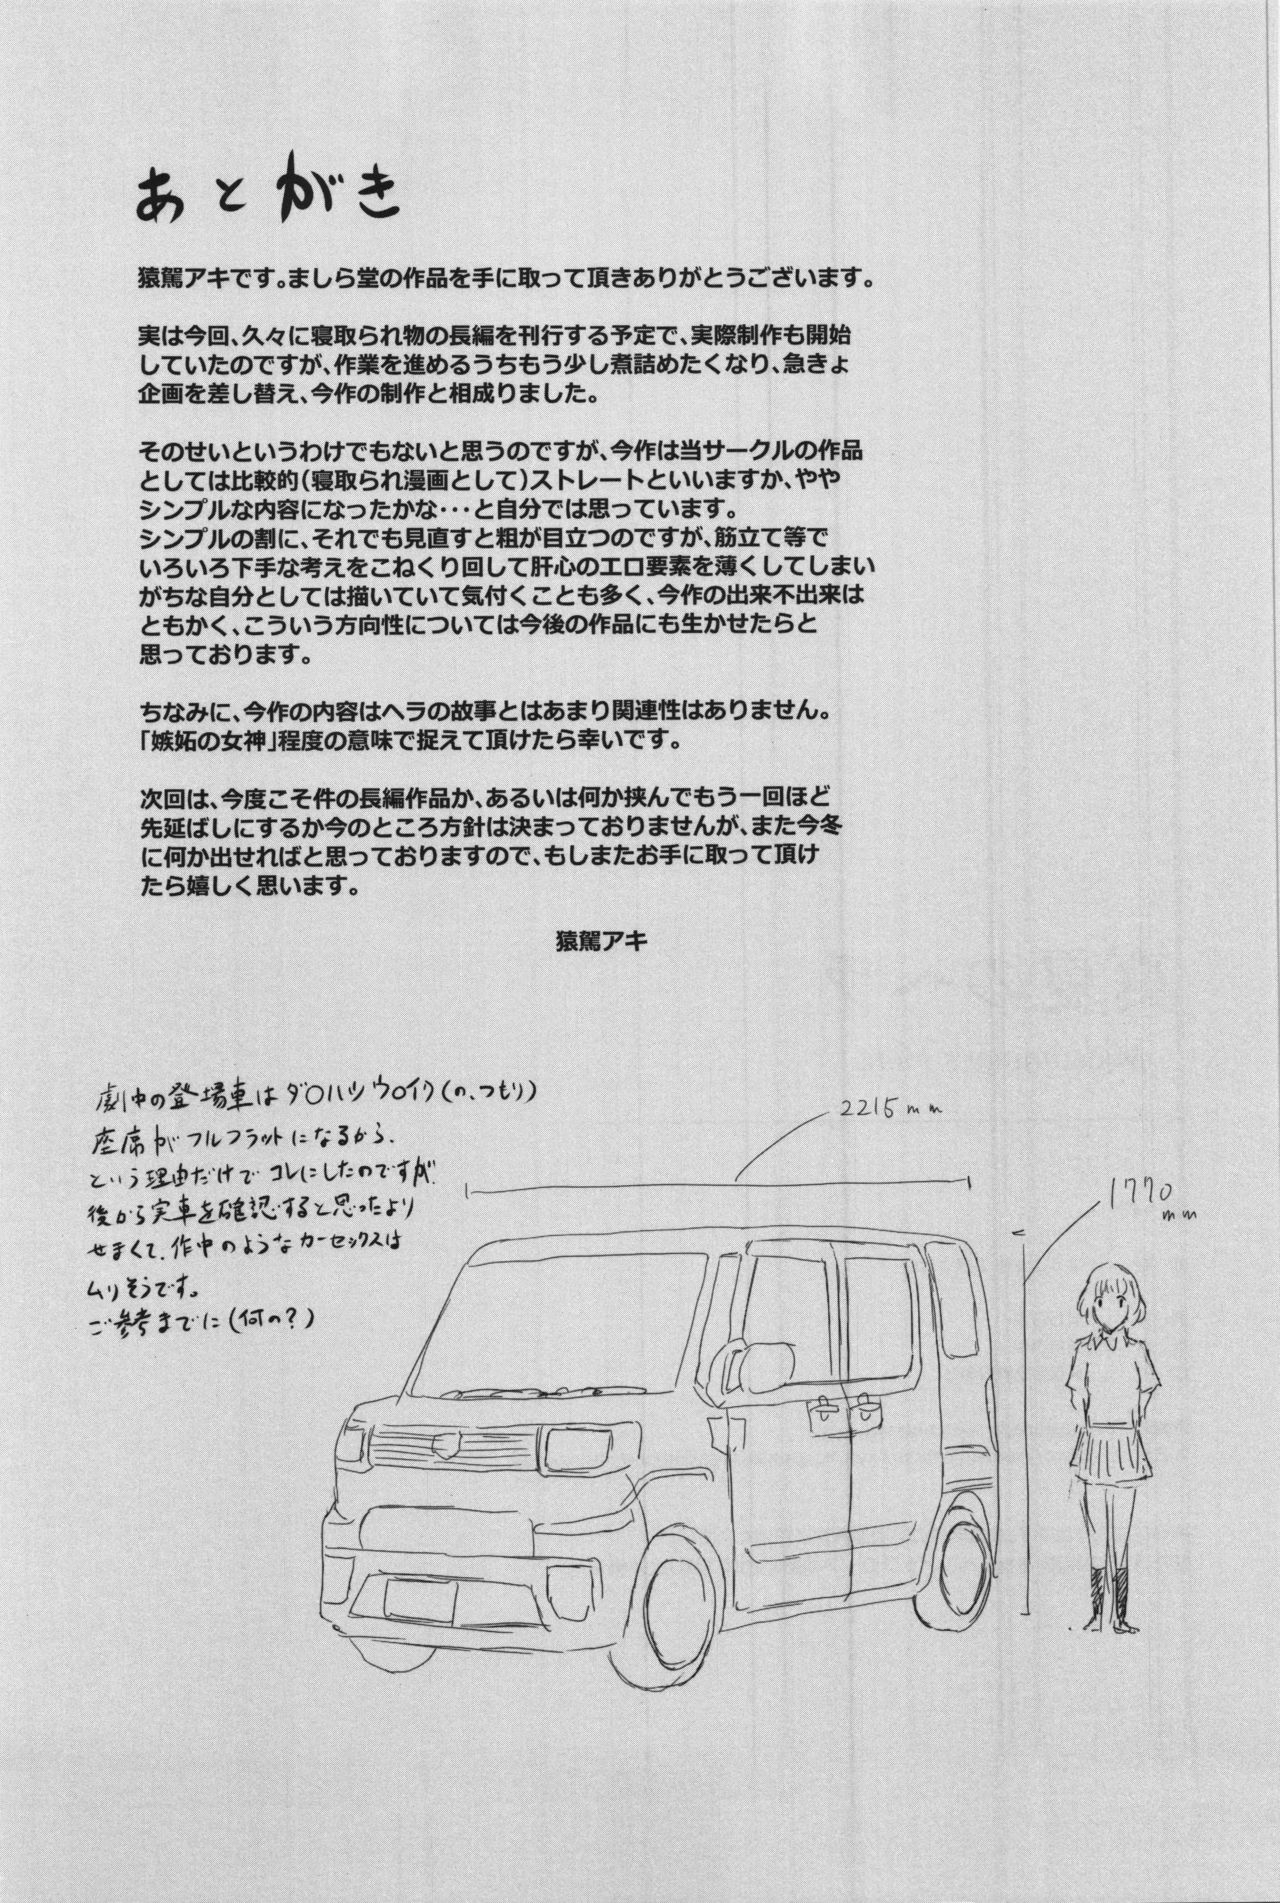 あとがき
猿駕アキです。ましら堂の作品を手に取って頂きありがとうございます。
実は今回、久々に寝取られ物の長編を刊行する予定で、実際制作も開始
していたのですが、作業を進めるうちもう少し煮詰めたくなり、急きょ
企画を差し替え、今作の制作と相成りました。
そのせいというわけでもないと思うのですが、今作は当サークルの作品
としては比較的（寝取られ漫画として）ストレートといいますか、やや
シンプルな内容になったかな・・・と自分では思っています。
シンプルの割に、それでも見直すと粗が目立つのですが、筋立て等で
いろいろ下手な考えをこねくり回して肝心のエロ要素を薄くしてしまい
がちな自分としては描いていて気付くことも多く、今作の出来不出来は
ともかく、こういう方向性については今後の作品にも生かせたらと
思っております。
ちなみに、今作の内容はヘラの故事とはあまり関連性はありません。
「嫉妬の女神」程度の意味で捉えて頂けたら幸いです。
次回は、今度こそ件の長編作品か、あるいは何か挟んでもう一回ほど
先延ばしにするか今のところ方針は決まっておりませんが、また今冬
に何か出せればと思っておりますので、もしまたお手に取って頂け
たら嬉しく思います。
猿駕アキ
劇中の登場車はダ〇ハツ ウ〇イク(の、つもり)
座席がフルフラットになるから、
という理由だけでコレにしたのですが、
後から実車を確認すると思ったより
せまくて、作中のようなカーセックスは
ムリそうです。
ご参考までに(何の?)
2215mm
1770
mm